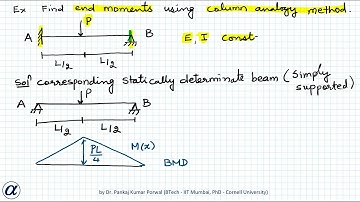 Ex Find end moments using column analogy method.
P
A B
E, I const.
L/2 L/2
Sol^n corresponding statically determinate beam (Simply supported)
P
A B
L/2 L/2
PL/4 M(x)
BMD
α by Dr. Pankaj Kumar Porwal (BTech - IIT Mumbai, PhD - Cornell University)